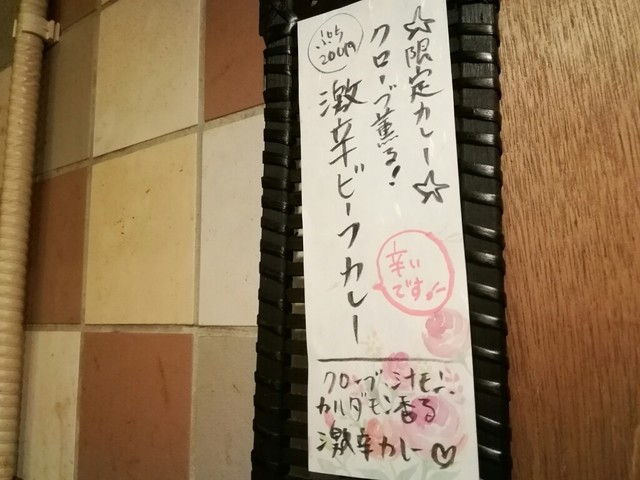 ☆限定カレー☆
クローブ薫る!
激辛ビーフカレー
ぷち
200円
辛い
です
クローブ、シナモン、
カルダモン香る
激辛カレー♡